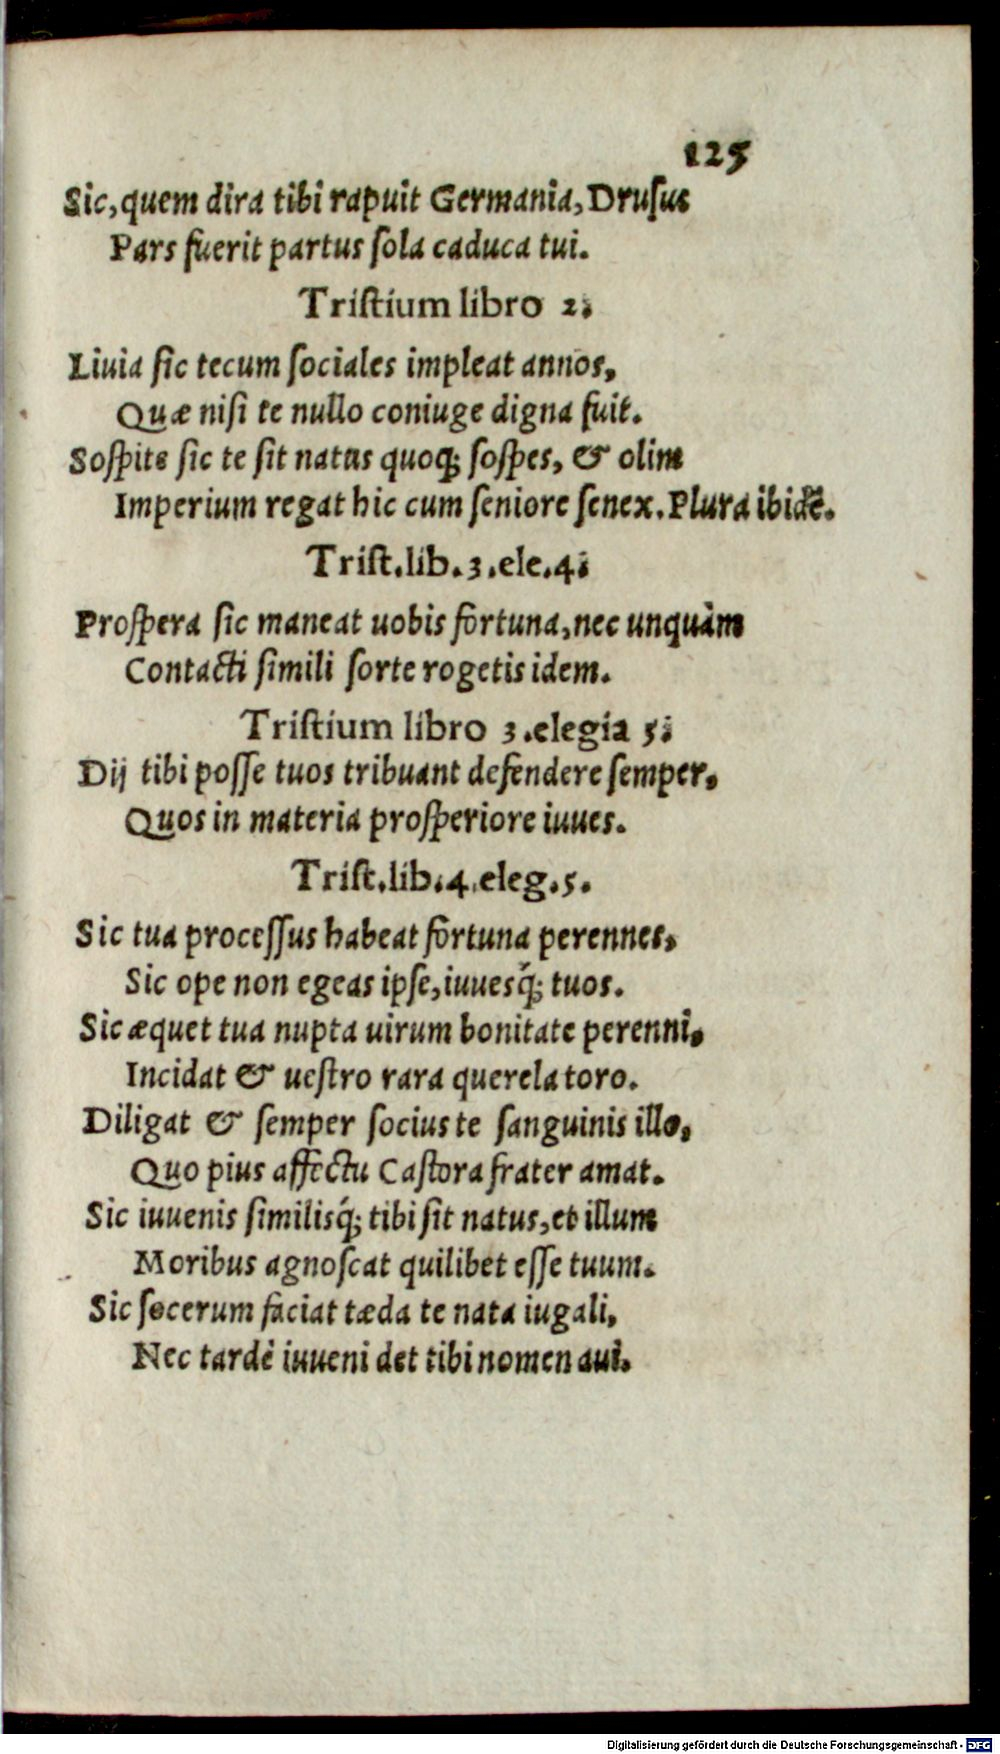 125
Sic, quem dira tibi rapuit Germania, Druſus
Pars fuerit partus ſola caduca tui.
Triſtium libro 2.
Liuia ſic tecum ſociales impleat annos,
Quæ niſi te nullo coniuge digna fuit.
Soſpite ſic te ſit natus quoq; ſoſpes, & olim
Imperium regat hic cum ſeniore ſenex. Plura ibidẽ.
Triſt. lib. 3. ele. 4.
Proſpera ſic maneat uobis fortuna, nec unquàm
Contacti ſimili ſorte rogetis idem.
Triſtium libro 3. elegia 5.
Dij tibi poſſe tuos tribuant defendere ſemper,
Quos in materia proſperiore iuues.
Triſt. lib. 4. eleg. 5.
Sic tua proceſſus habeat fortuna perennes,
Sic ope non egeas ipſe, iuuesq́; tuos.
Sic æquet tua nupta uirum bonitate perenni,
Incidat & ueſtro rara querela toro.
Diligat & ſemper ſocius te ſanguinis illo,
Quo pius affectu Caſtora frater amat.
Sic iuuenis ſimilisq́; tibi ſit natus, et illum
Moribus agnoſcat quilibet eſſe tuum.
Sic ſocerum faciat tæda te nata iugali,
Nec tardè iuueni det tibi nomen aui.
Digitalisierung gefördert durch die Deutsche Forschungsgemeinschaft - DFG